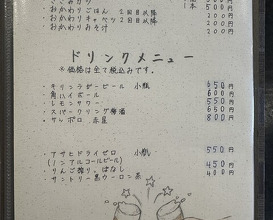 ・ささみカツ 1本 500円
・おかわりごはん 2回目以降 200円
・おかわりキャベツ 2回目以降 200円
・おかわりみそ汁 200円
ドリンクメニュー
※価格は全て税込みです。
・キリンラガービール 小瓶 650円
・角ハイボール 600円
・レモンサワー 550円
・スパークリング梅酒 650円
・サッポロ 赤星 800円
・アサヒドライゼロ 小瓶 550円
(ノンアルコールビール)
・りんご搾り 450円
・サントリー黒ウーロン茶 400円